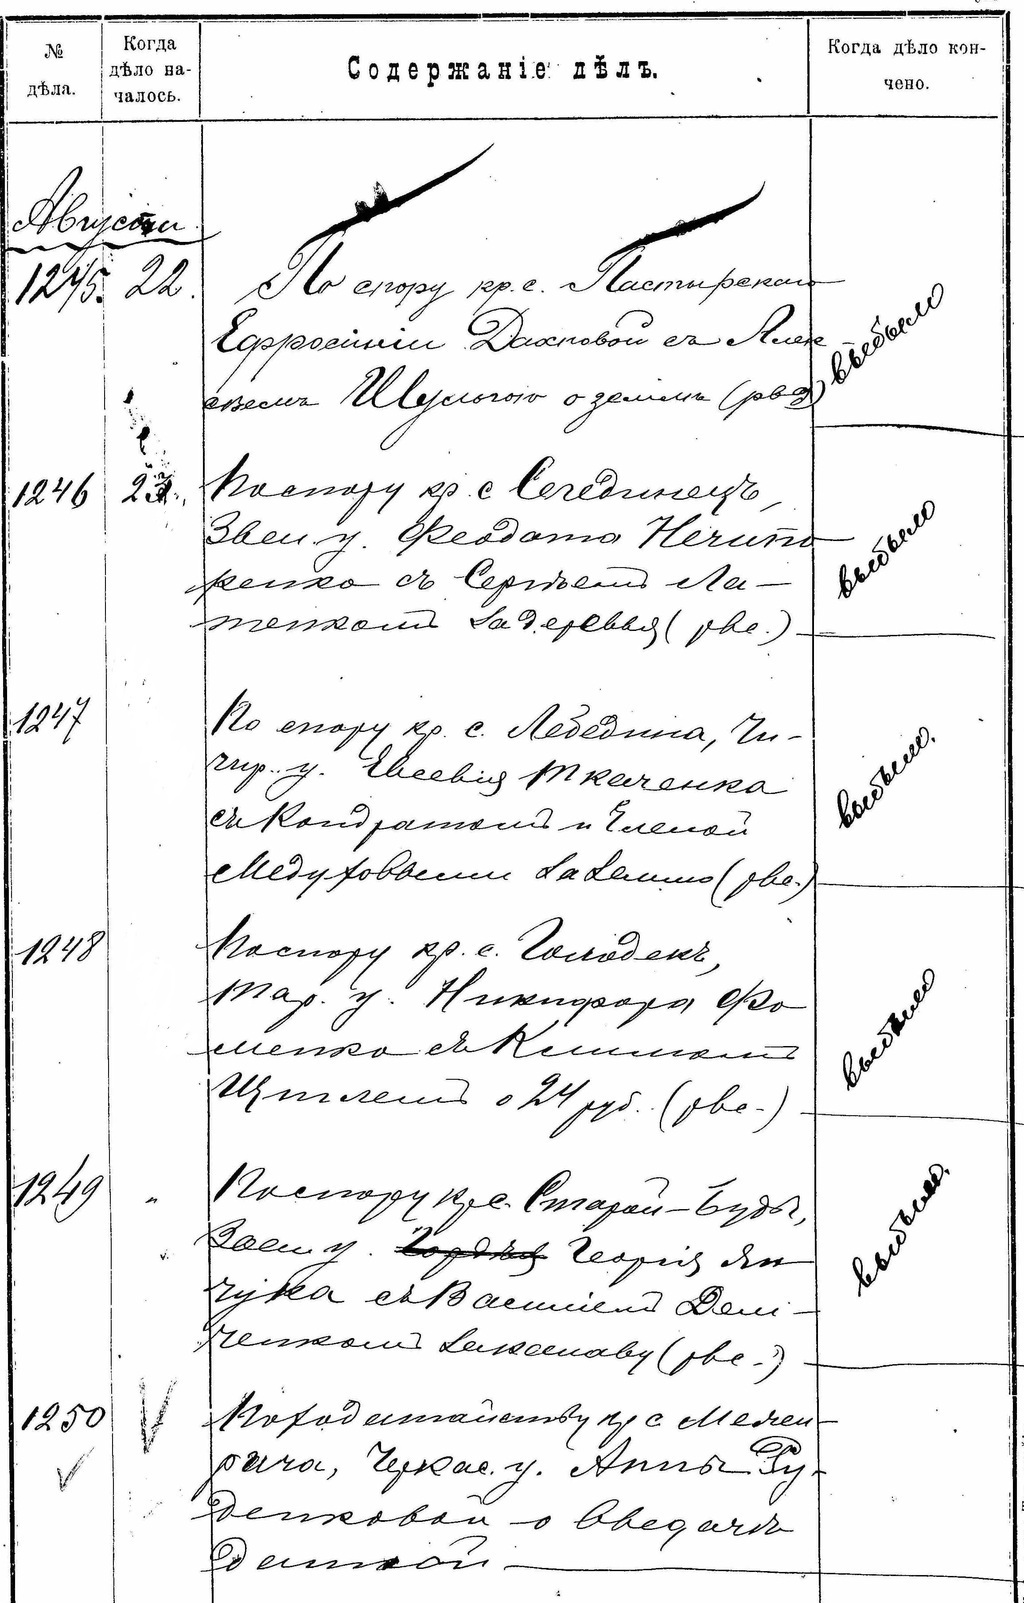 № дѣла.
Когда дѣло на-
чалось.
Содержаніе дѣлъ.
Когда дѣло кон-
чено.
Августъ
1245. 22.
По спору кр. с. Пастырскаго
Ефросиніи Дахновой съ Алек
сѣемъ Шульгою о землѣ
выбыло
1246 23.
По спору кр. с Сегединецъ,
Звен у. Феодота Нечипо
ренко съ Сергѣемъ Ла-
щенкомъ за деревья (рве.)
выбыло
1247
По спору кр. с. Лебедина, Чи-
гир. у. Евсевія Ткаченка
съ Кондратомъ и Еленой
Медуховыми за землю (рве.)
выбыло.
1248
По спору кр. с. Голодекъ,
Тар. у. Никифора Фо
менко съ Климомъ
о 24 руб. (рве.)
выбыло
1249 "
По спору кр с. Старой-Буды,
Звен у. Гордѣя Георгія Ян
чука съ Василіемъ Дем-
ченкомъ за канаву (рве.)
выбыло.
1250
По ходатайству кр с Межи-
рича, Черкас. у. Анны Ру-
денковой о выдачѣ
данной